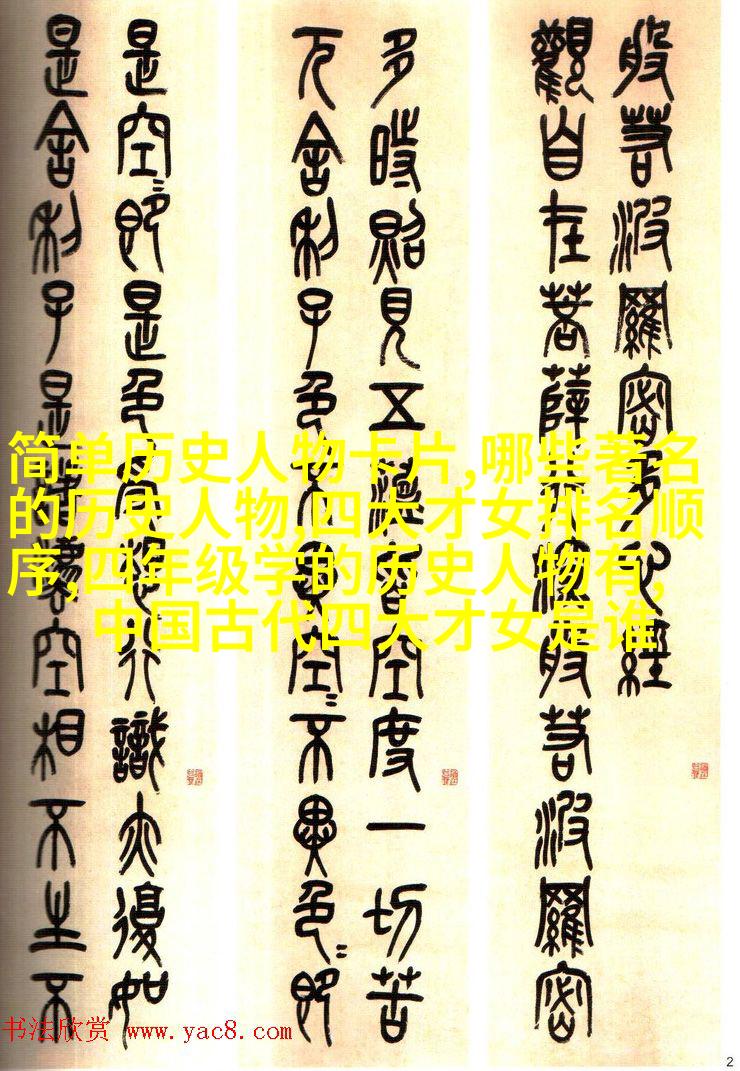 般若波羅密多心經
觀自在菩薩行深般若波羅密
多時照見五蘊皆空度一切苦
厄舍利子色不異空〻不異色〻即
是空〻即是色受想行識亦復如
是舍利子是諸法空相不生不
简单历史人物卡片,哪些著名
的历史人物,四大才女排名顺
序,四年级学的历史人物有,
中国古代四大才女是谁
书法欣赏 www.yac8.com
2